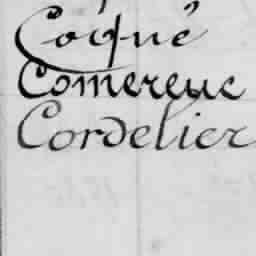 Coqué
Comereuc
Cordelier